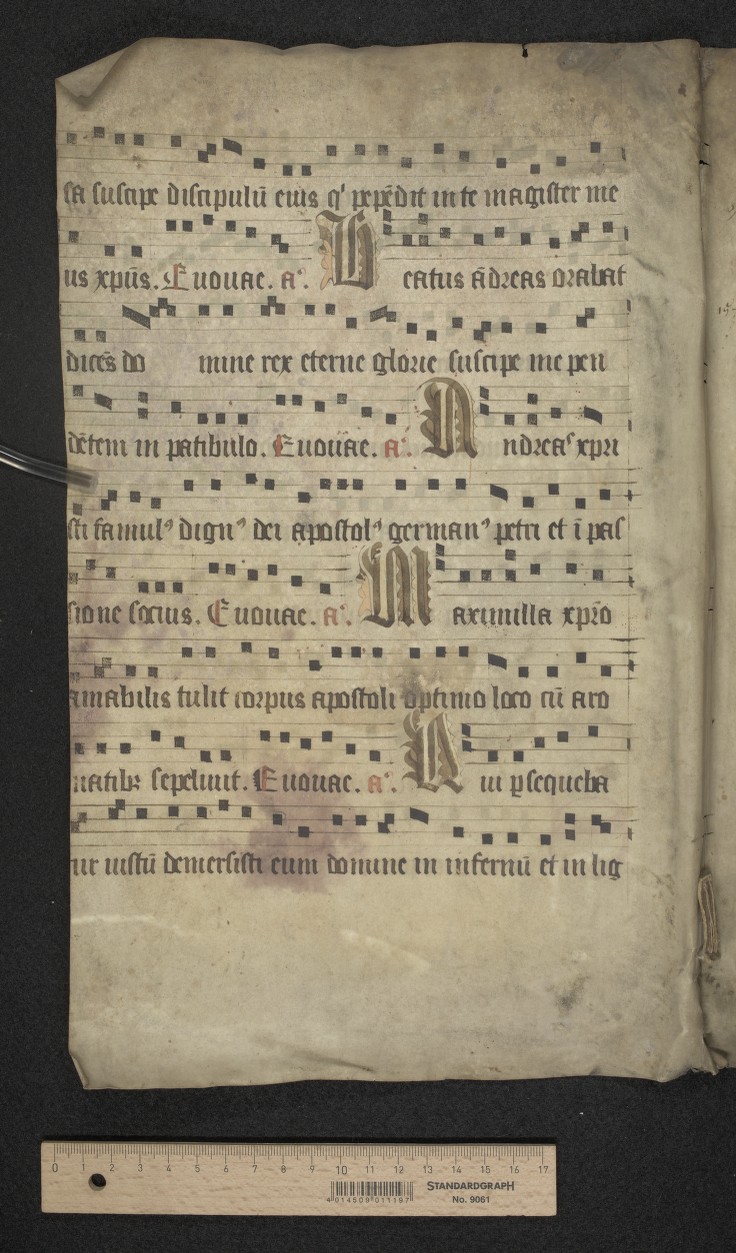 sa suscipe discipulū eius q' pepēdit in te magister me
us xpūs. Euouae. aᵃ. Beatus ādreas orabat
dicēs do mine rex eterne glorie suscipe me pen
dētem in patibulo. Euouae. aᵃ. Andreaˢ xpri
sti famulꝰ dignꝰ dei apostolꝰ germanꝰ petri et ī pas
sione socius. Euouae. aᵃ. Maximilla xpro
amabilis tulit corpus apostoli optimo loco cū aro
matibꝫ sepeliuit. Euouae. aᵃ. Qui ꝑsequeba
tur iustū demersisti eum domine in infernū et in lig
0 1 2 3 4 5 6 7 8 9 10 11 12 13 14 15 16 17
4 014509 011197
STANDARDGRAPH
No. 9061